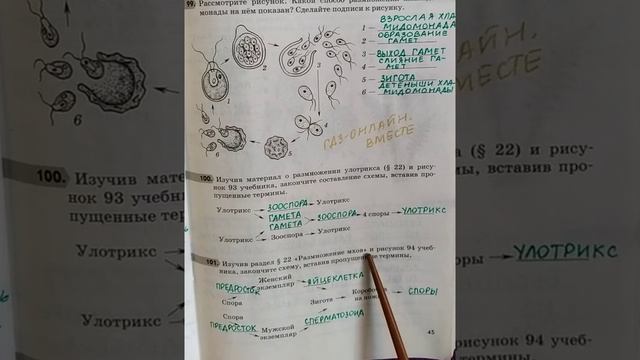 99. Рассмотрите рисунок. Какой способ
монады на нём показан? Сделайте подписи к рисунку.
1 — ВЗРОСЛАЯ ХЛА-
МИДОМОНАДА
2 — ОБРАЗОВАНИЕ
ГАМЕТ
3 — ВЫХОД ГАМЕТ
4 — СЛИЯНИЕ ГА-
МЕТ
5 — ЗИГОТА
6 — ДЕТЕНЫШИ ХЛА-
МИДОМОНАДЫ
1
2
3
4
5
6
ГДЗ-ОНЛАЙН.
ВМЕСТЕ
100. Изучив материал о размножении улотрикса (§ 22) и рису-
нок 93 учебника, закончите составление схемы, вставив про-
пущенные термины.
Улотрикс ЗООСПОРА Улотрикс
ГАМЕТА
ГАМЕТА ЗООСПОРА 4 споры УЛОТРИКС
Улотрикс Зооспора Улотрикс
101. Изучив раздел § 22 «Размножение мхов» и рисунок 94 учеб-
ника, закончите схему, вставив пропущенные термины.
ПРЕДРОСТОК Женский экземпляр ЯЙЦЕКЛЕТКА
Спора Зигота Коробочка на ножке СПОРЫ
Спора
ПРЕДРОСТОК Мужской экземпляр СПЕРМАТОЗОИД
45
6
100.
Изучив мате
нок 93 учеб
пущенные т
Улотрикс
Улотрикс
ТВЕ
(§ 22) и рису-
вставив про-
УЛОТРИКС